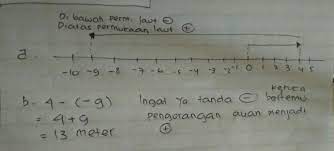 Di bawah perm. laut ⊖
Diatas permukaan laut ⊕
a.
-10 -9 -8 -7 -6 -5 -4 -3 -2 -1 0 1 2 3 4 5
b. 4 - (-9) Ingat ya tanda ⊖ ketika bertemu
= 4 + 9 pengurangan akan menjadi
= 13 meter ⊕